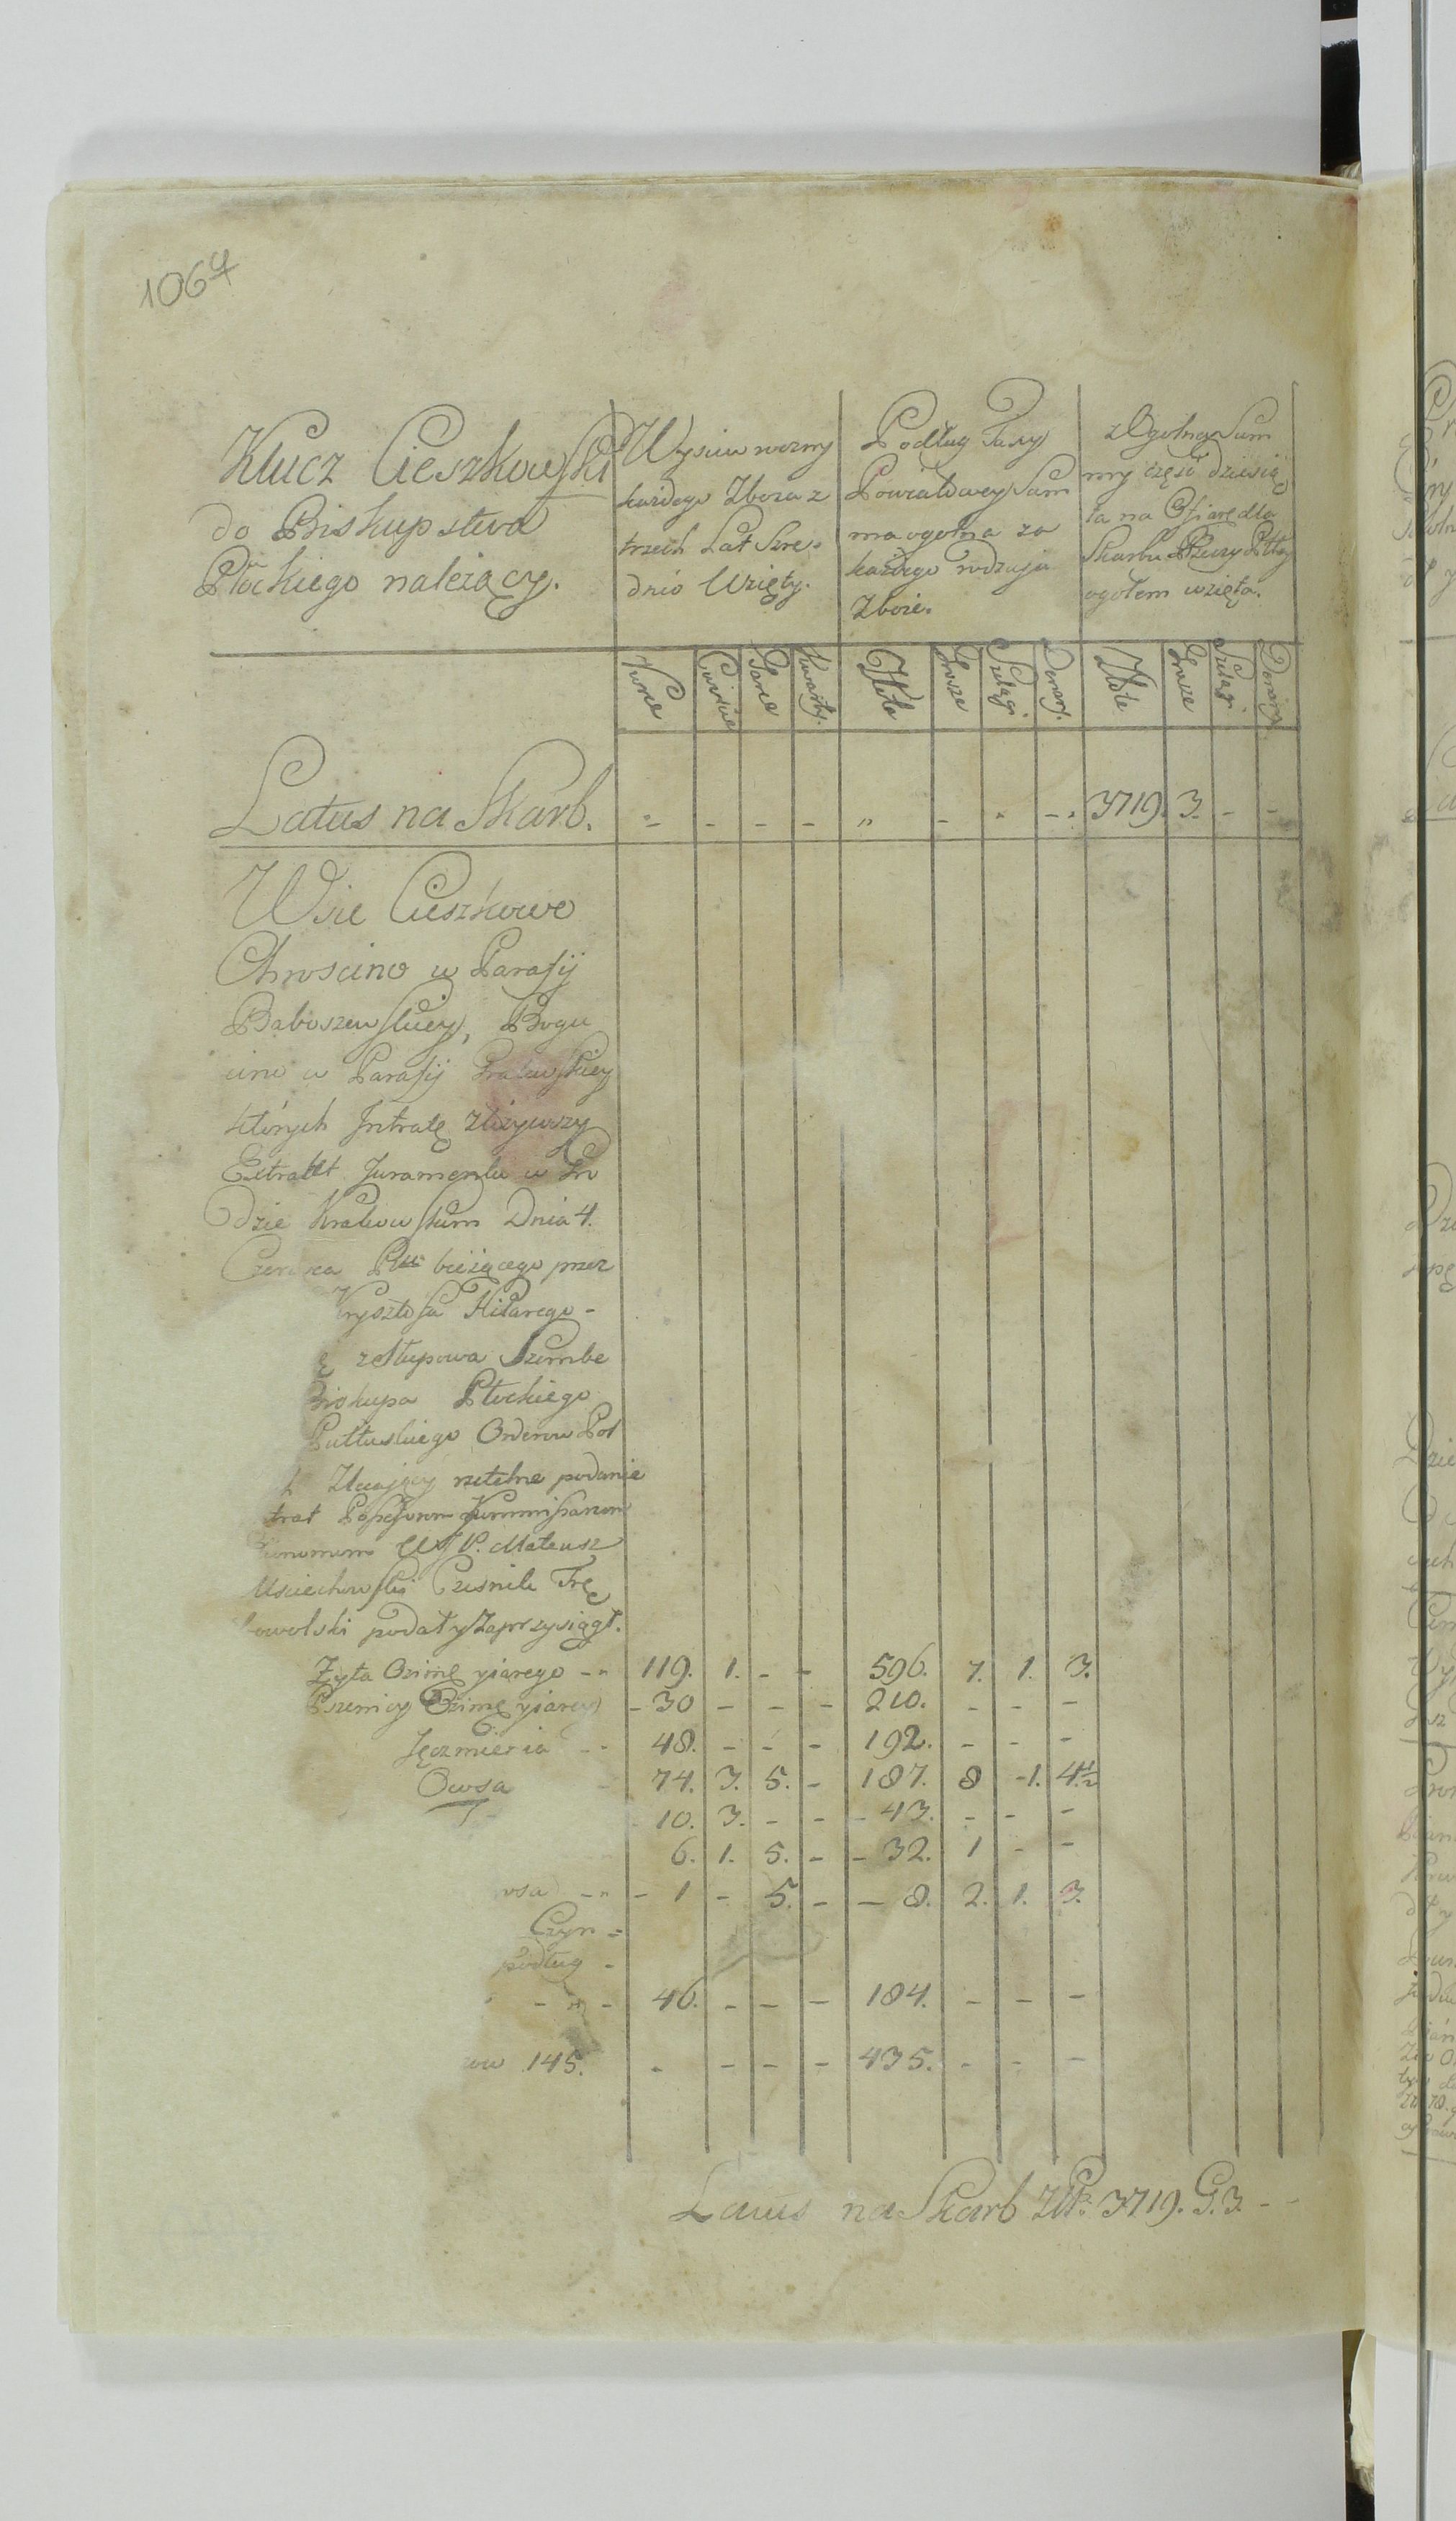 1067
Klucz Cieszkowski
do Biskupstwa
Płockiego należący.
Wysiew rozny
każdego Zboza z
trzech Lat Szre-
dnio Wzięty.
Podług Taxy
Powiatowey Sum
ma ogolna za
każdego rodzaju
Zboże.
z Ogolney Sum
my część dziesią
ta na Ofiarę dla
Skarbu Rzeczy Pltey
ogołem wzięta.
Korce Cwircie Garce Kwarty. Złote Grosze Szelągi. Denary. Złote Grosze Szelągi. Denary
Latus na Skarb. - - - - " - - - 3719. 3. - -
Wsie Cieszkowo
Chroscino w Parafij
Baboszewskiey, Bogu
cino w Parafij
których Jntratę zliżywszy
Extrakt Juramentu w Gro
dzie Krakowskum Dnia 4.
Czerwca Rku bieżącego przez
Krysztofa Hilarego -
ę z Słupowa Szembe
Biskupa Płockiego
Pułtuskiego Orderow Pol
rzetelne podanie
trat Possessorom Kommissarzom
WJP. Mateusz
Czesnik Trę
bowolski podał y Zaprzysiągł.
Zyta Ozimę yiarego - - 119. 1. - - 596. 7. 1. 3.
Pszenicy Ozimę yiarey - 30 - - - 210. - - -
Jęczmienia - - 48. - - - 192. - - -
Owsa 74. 3. 5. - 187. 8 - 1. 4 1/2
10. 3. - - - 43. - - -
6. 1. 5. - - 32. 1 - -
- - - 1 - 5. - - 8. 2. 1. 3.
Czyn =
podług -
- - - 46. - - - 184. - - -
ow 145. - - - - 435. - - -
Latus na Skarb ZłP. 3719. G. 3. - -